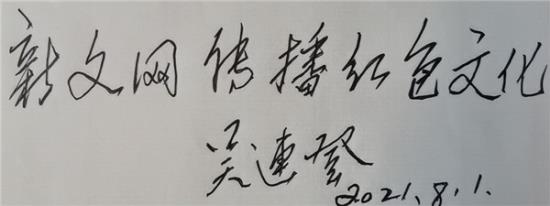 新文网传播红色文化
吴連登
2021.8.1.